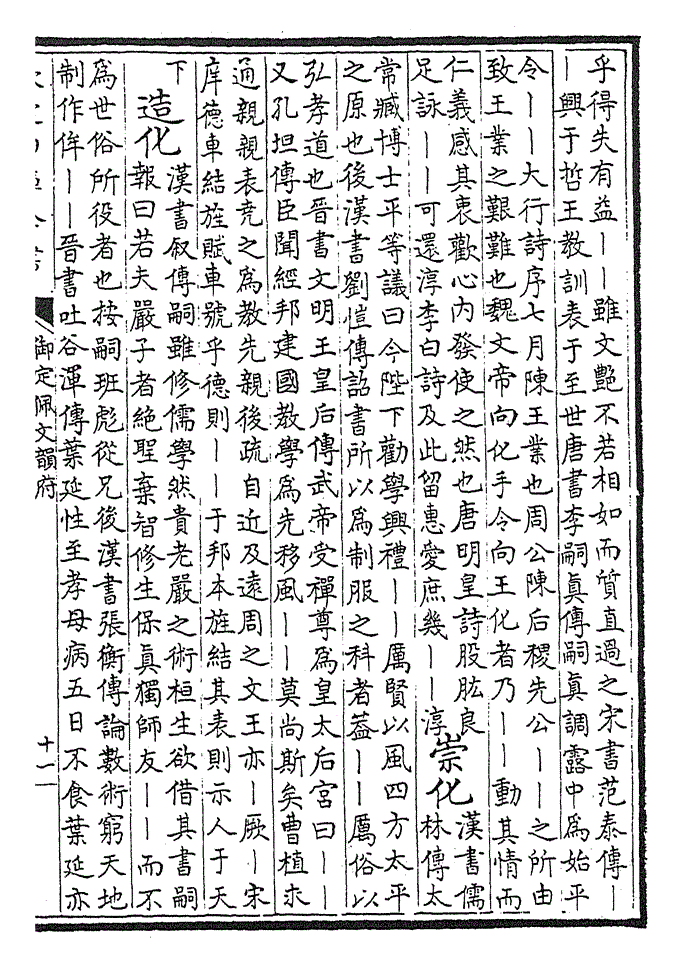 乎得失有益丨丨雖文艷不若相如而質直過之宋書范泰傳丨
丨興于哲王教訓表于至世唐書李嗣真傳嗣真調露中為始平
令丨丨大行詩序七月陳王業也周公陳后稷先公丨丨之所由
致王業之艱難也魏文帝向化手令向王化者乃丨丨動其情而
仁義感其衷歡心内發使之然也唐明皇詩股肱良
足詠丨丨可還淳李白詩及此留惠愛庶幾丨丨淳
崇化
漢書儒
林傳太
常臧博士平等議曰今陛下勸學興禮丨丨厲賢以風四方太平
之原也後漢書劉愷傳詔書所以為制服之科者葢丨丨厲俗以
弘孝道也晉書文明王皇后傳武帝受禪尊為皇太后宮曰丨丨
又孔坦傳臣聞經邦建國教學為先移風丨丨莫尚斯矣曹植求
通親親表堯之為教先親後疏自近及遠周之文王亦丨厥丨宋
庠德車結旌賦車號乎德則丨丨于邦本旌結其表則示人于天
下
造化
漢書叙傳嗣雖修儒學然貴老嚴之術桓生欲借其書嗣
報曰若夫嚴子者絶聖棄智修生保真獨師友丨丨而不
為世俗所役者也按嗣班彪從兄後漢書張衡傳論數術窮天地
制作侔丨丨晉書吐谷渾傳葉延性至孝母病五日不食葉延亦
御定佩文韻府
十一